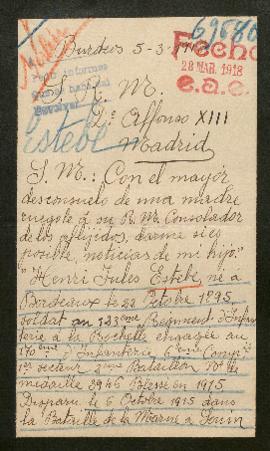 69680
Burdeos 5-3-191
Fecho
28 MAR. 1918
e.a.e.
S. R. M.
Dn Alfonso XIII
Estebe
Madrid
S. M.: Con el mayor
desconsuelo de una madre
ruegole á su R. M. Consolador
de los aflijidos, darme si es
posible, noticias de mi hijo."
"Henri Jules Estebe, né a
Bordeaux le 22 Octobre 1895
soldat au 123ème Regiment d'Infan
terie à la Rochelle engagée au
170ème d'Infanterie, Comp
1er secteur 2ème Bataillon No de
medaille 2946 Blessé en 1915
Disparu le 6 Octobre 1915 dans
la Bataille de la Marne a